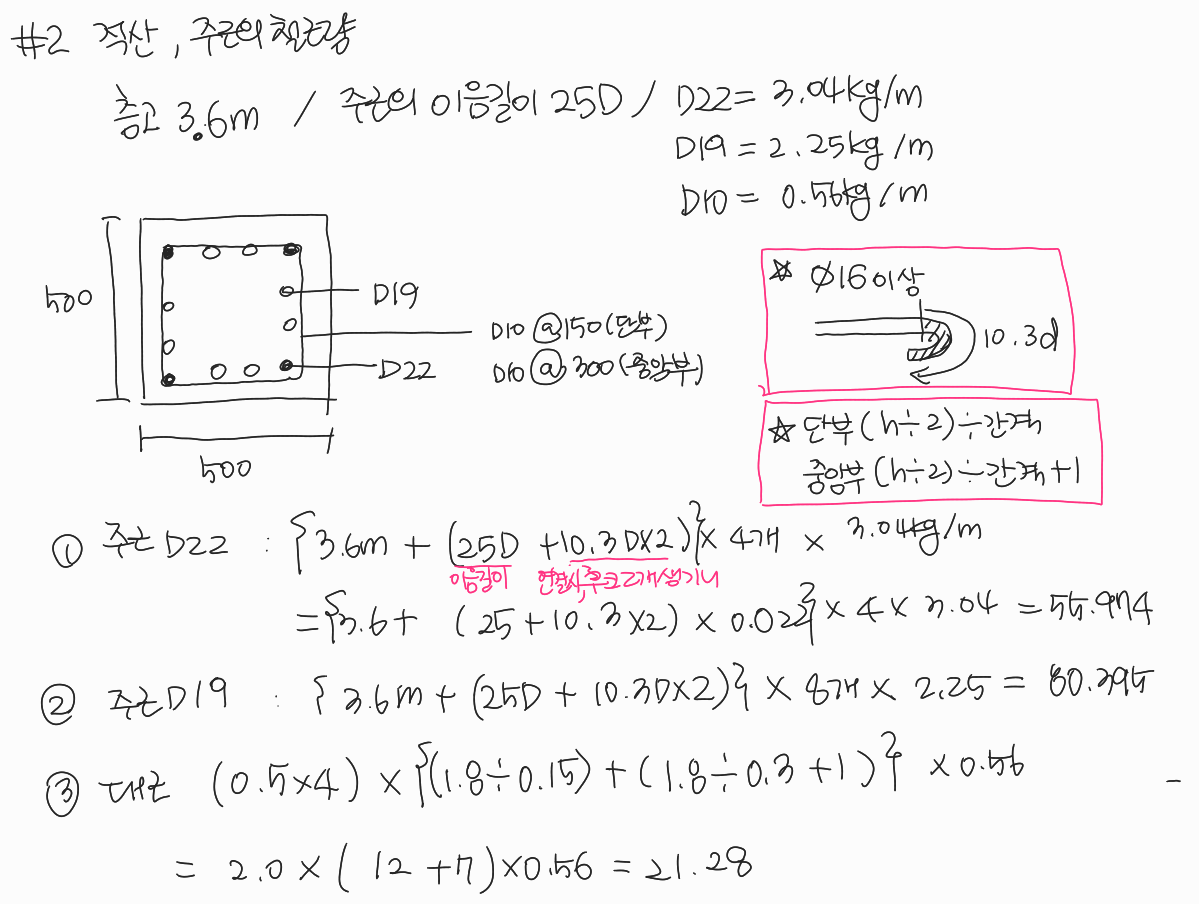 #2 적산, 주근의 철근량
층고 3.6m / 주근의 이음길이 25D / D22 = 3.04kg/m
D19 = 2.25kg/m
D10 = 0.56kg/m
500
D19
D10 @150(단부)
D22
D10 @300(중앙부)
500
☆ Ø16이상
10.3d
☆ 단부(h÷2)÷간격
중앙부(h÷2)÷간격+1
① 주근 D22 : {3.6m + (25D + 10.3D×2)} × 4개 × 3.04kg/m
이음길이 연결시, 후크 2개 생기니
= {3.6 + (25 + 10.3×2) × 0.022} × 4 × 3.04 = 55.974
② 주근 D19 : {3.6m + (25D + 10.3D×2)} × 8개 × 2.25 = 80.395
③ 대근 (0.5×4) × {(1.8÷0.15) + (1.8÷0.3+1)} × 0.56
= 2.0 × (12 + 7) × 0.56 = 21.28